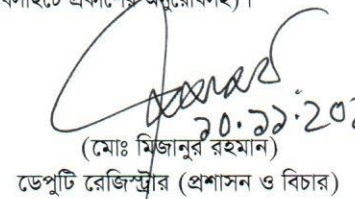 প্রকাশের অনুরোধসহ)।
২০.১১.২০
(মোঃ মিজানুর রহমান)
ডেপুটি রেজিস্ট্রার (প্রশাসন ও বিচার)